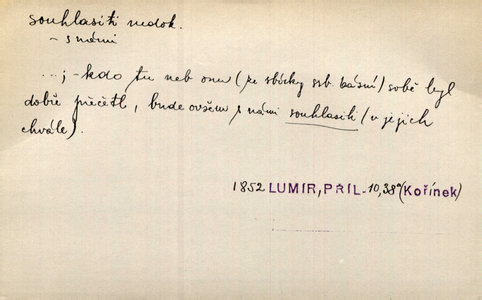 souhlasiti nedok.
– s námi
...; – kdo tu neb onu (ze sbírky srb. básní) sobě byl
dobře přečetl, bude ovšem s námi souhlasiti (v jejich
chvále).
1852 LUMÍR, PŘÍL. 10, 38a (Kořínek)